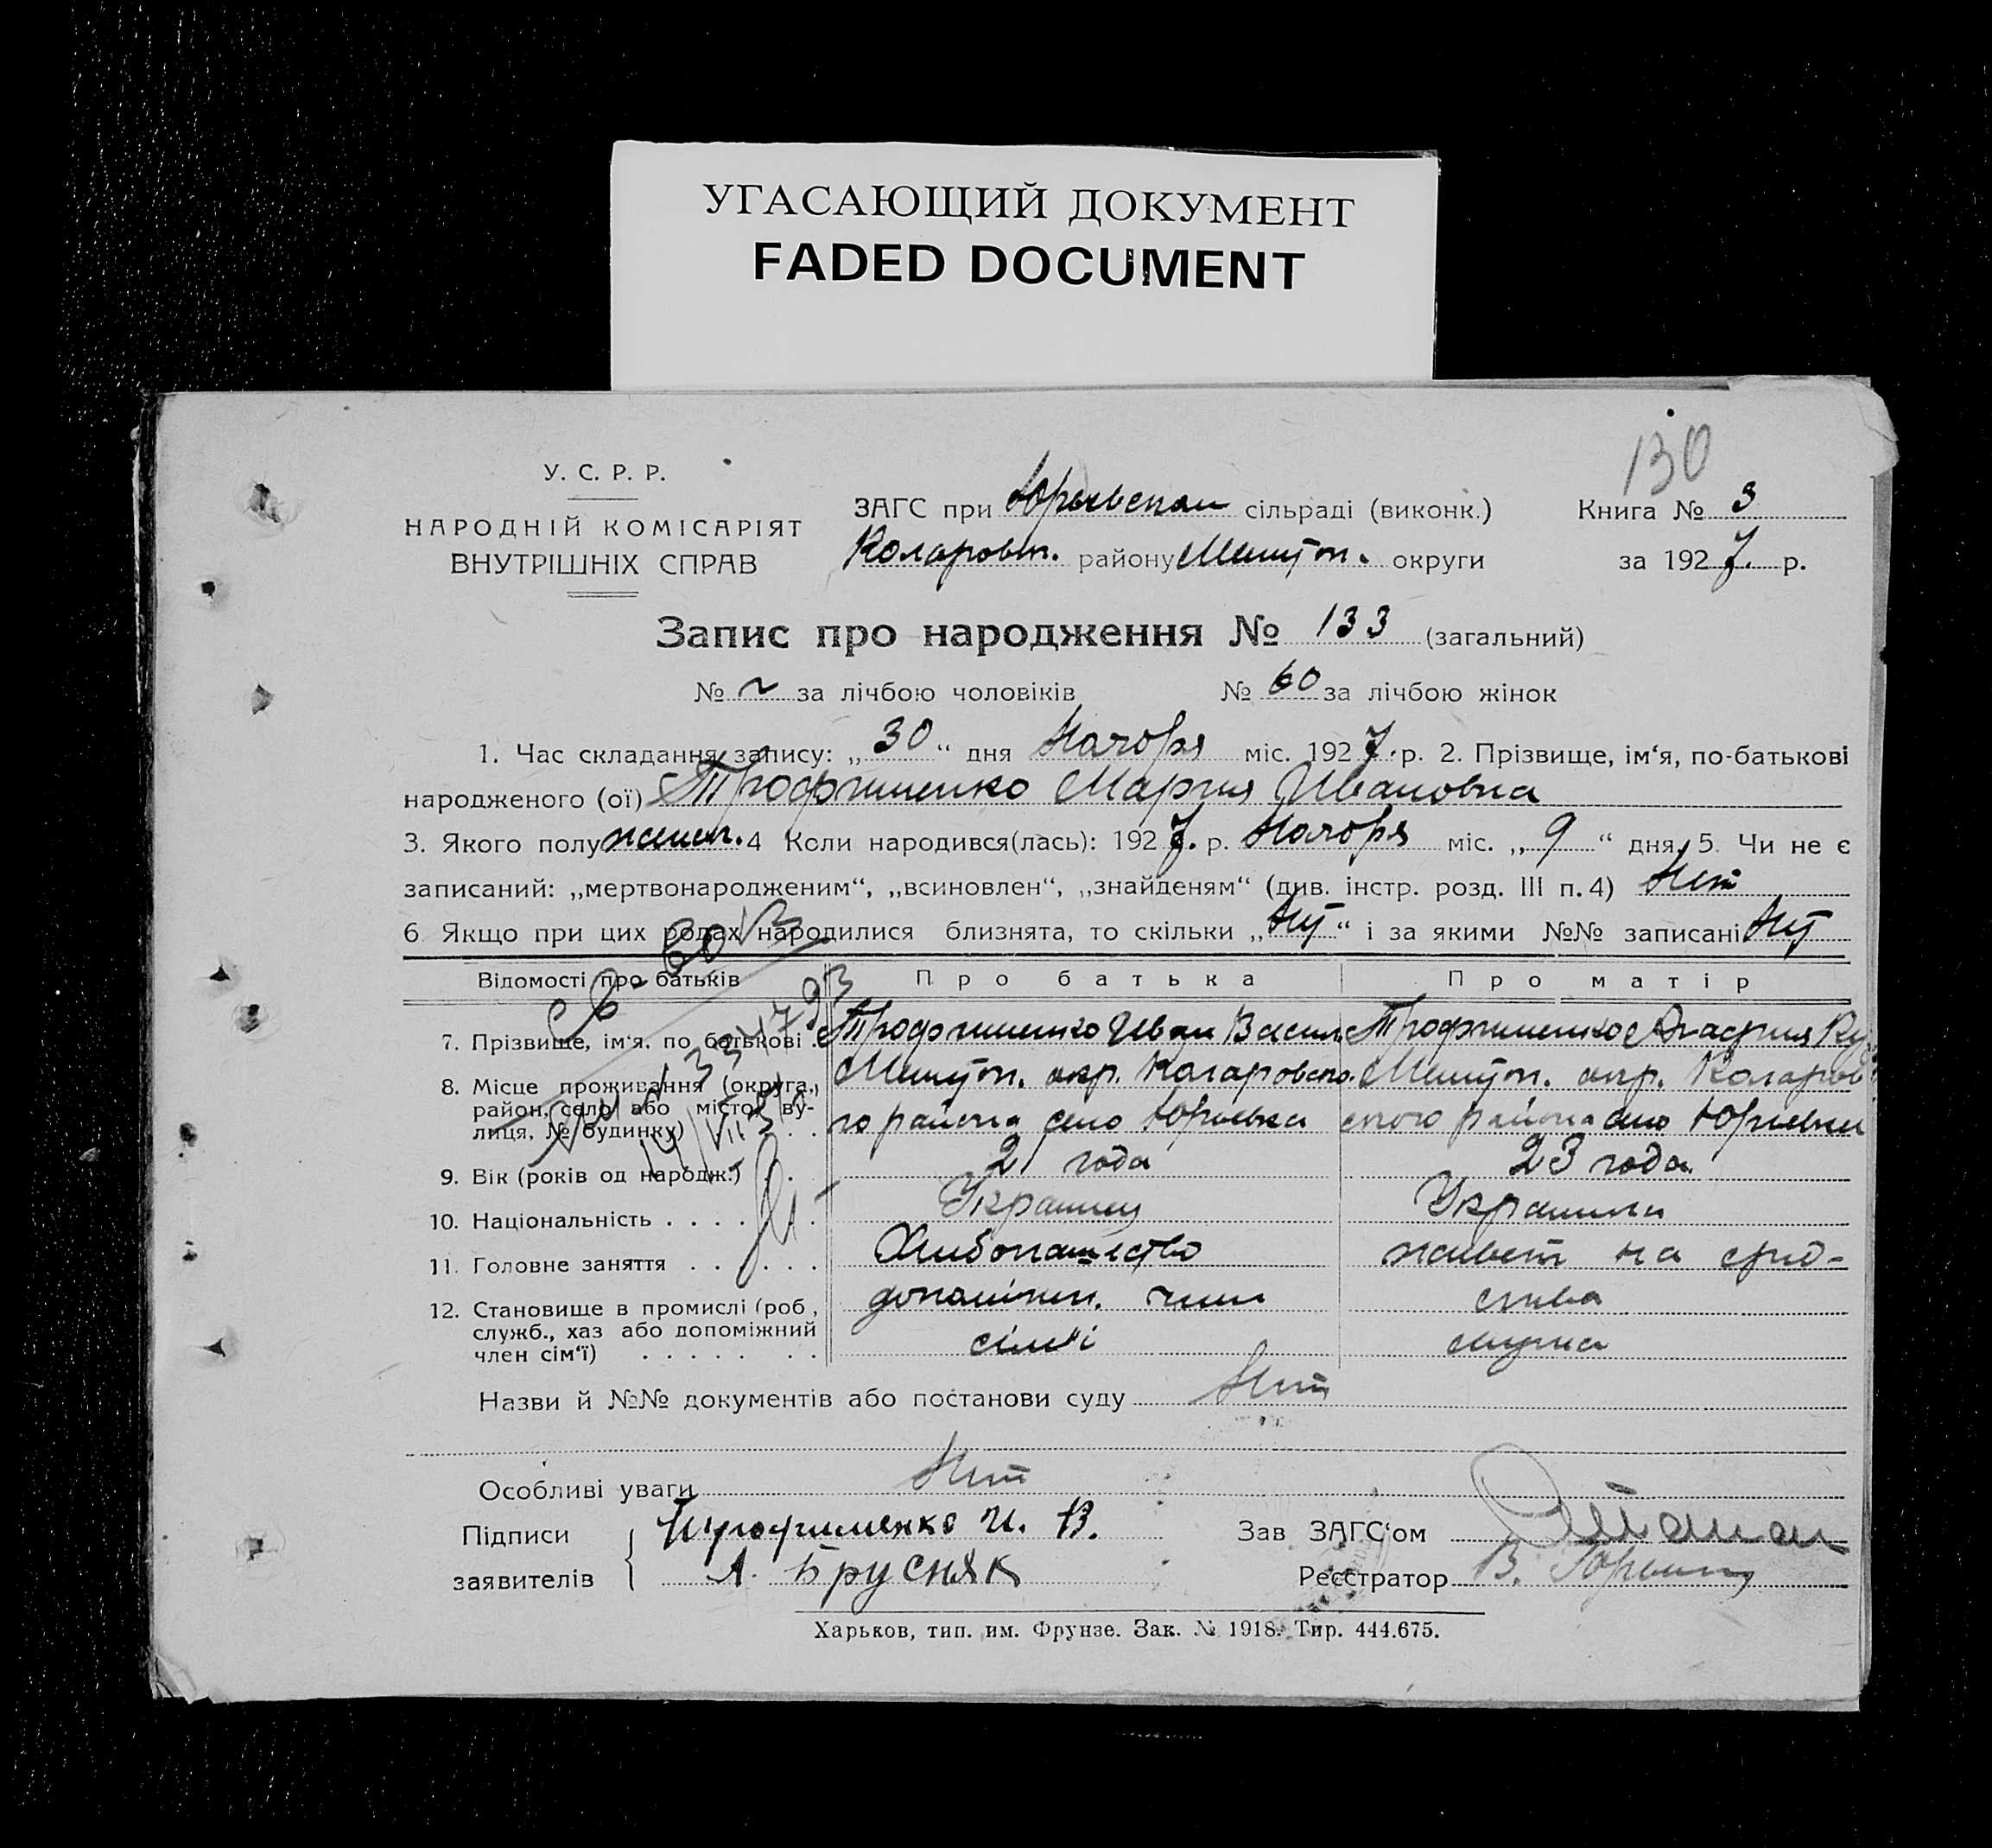 УГАСАЮЩИЙ ДОКУМЕНТ
FADED DOCUMENT
130
У. С. Р. Р.
НАРОДНІЙ КОМІСАРІЯТ
ВНУТРІШНІХ СПРАВ
ЗАГС при Юрьевском сільраді (виконк.)
Коларовск. району Мелитоп. округи
Книга № 3
за 1927. р.
Запис про народження № 133 (загальний)
№ за лічбою чоловіків № 60 за лічбою жінок
1. Час складання запису: „30“ дня Ноября міс. 1927. р. 2. Прізвище, ім‘я, по-батькові
народженого (ої) Трофименко Мария Ивановна
3. Якого полу женск. 4 Коли народився(лась): 1927. р. Ноября міс. „9“ дня. 5. Чи не є
записаний: „мертвонародженим“, „всиновлен“, „знайденям“ (див. інстр. розд. III п. 4) Нет
6. Якщо при цих родах народилися близнята, то скільки „Нет“ і за якими №№ записані Нет
Відомості про батьків Про батька Про матір
7. Прізвище, ім‘я, по батькові Трофименко Иван Василь Трофименко Агафия
8. Місце проживання (округа, район, село або місто, вулиця, № будинку)
Мелитоп. окр. Коларовско-
го района село Юрьевка
Мелитоп. окр. Коларов
ского района село Юрьевка
9. Вік (років од народж.) 21 года 23 года
10. Національність Украинец Украинка
11. Головне заняття Хлибопашество живет на сред-
12. Становище в промислі (роб., служб., хаз або допоміжний член сім‘ї)
допоміжн. член
сім'ї
ства
мужа
Назви й №№ документів або постанови суду Нет
Особливі уваги Нет
Підписи заявителів
Трофименко И. В.
А. Брусняк
Зав ЗАГС‘ом
Реєстратор В.
Харьков, тип. им. Фрунзе. Зак. № 1918. Тир. 444.675.